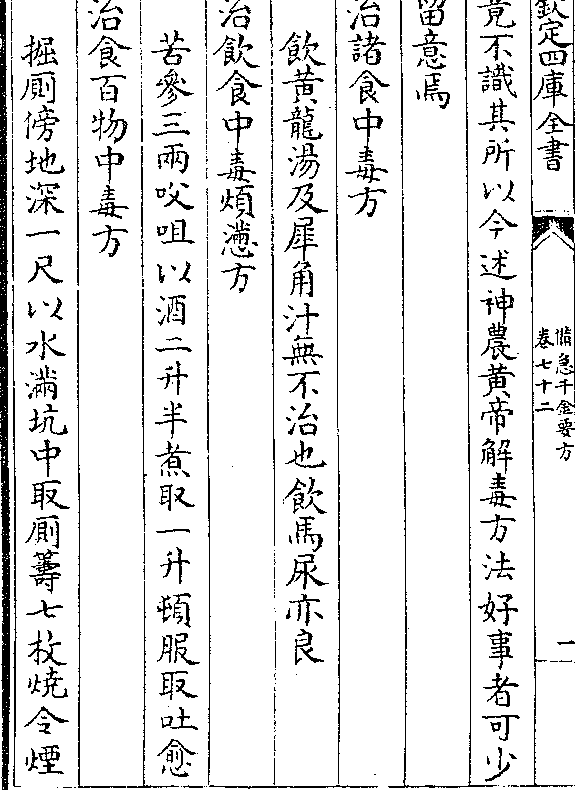 欽定四庫全書
備急千金要方
卷七十二
一
竟不識其所以今述神農黄帝解毒方法好事者可少
留意焉
治諸食中毒方
飲黄龍湯及犀角汁無不治也飲馬尿亦良
治飲食中毒煩懣方
苦參三兩㕮咀以酒二升半煮取一升頓服取吐愈
治食百物中毒方
掘厠傍地深一尺以水滿坑中取厠籌七枚燒令煙